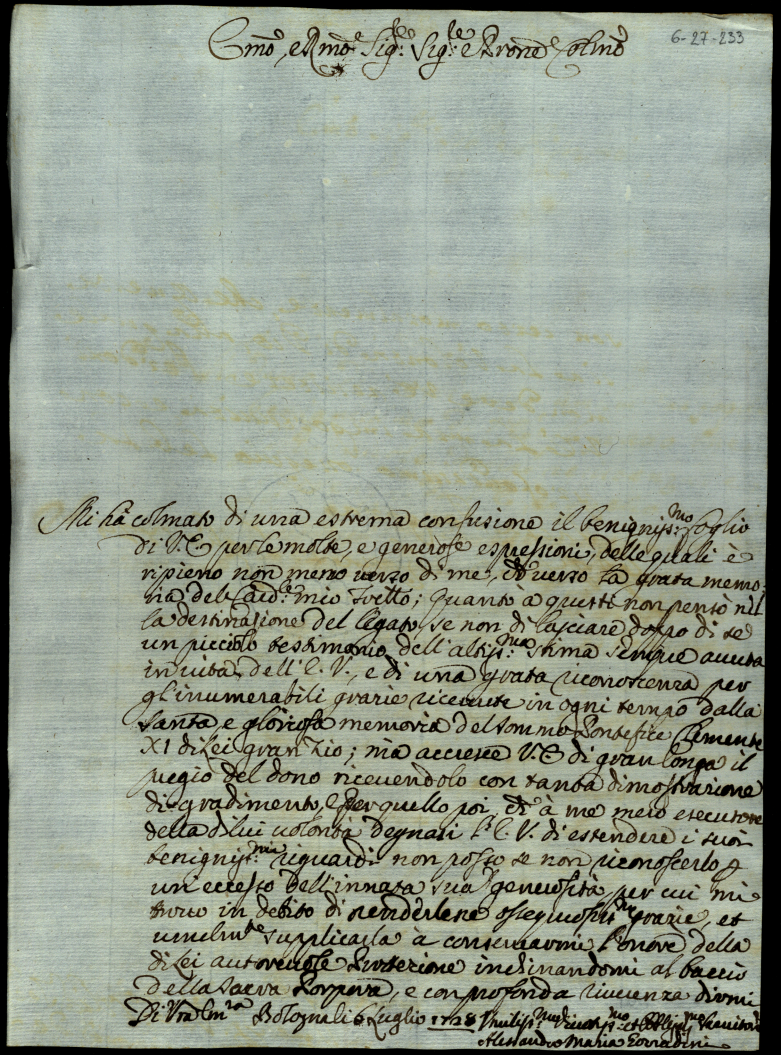 6-27-233
Emo, e Rmo Sigre Sigre e Prone Colmo
Mi hà colmato di una estrema confusione il benigniss:mo foglio
di V.E. per le molte, e generose espressioni, delle quali è
ripieno non meno verso di me, che verso la grata memo-
ria del mio Quanto à questi non pensò nel
la destinazione del legato, se non di lasciare doppo di se
un picciolo testimonio dell'altiss:ma stima sempre avuta
in vita dell'E.V., e di una grata riconoscenza per
gl'inumerabili grazie ricevute in ogni tempo dalla
santa, e gloriosa memoria del sommo Pontefice Clemente
XI di Lei gran Zio; mà accresce V.E. di gran longa il
pregio del dono ricevendolo con tanta dimostrazione
di gradimento, e per quello poi, che à me mero esecutore
della di lui volontà degnasi l'E.V. di estendere i suoi
benigniss:mi riguardi non posso se non riconoscerlo p
un eccesso dell'innata sua generosità, per cui mi
trovo in debito di renderlene ossequiosiss:me grazie, et
umilmte supplicarla à conservarmi l'onore della
di Lei autorevole Protezione inchinandomi al baccio
della Sacra Porpora, e con profonda riverenza dirmi
Di Vra Emza Bologna li 6 Luglio 1728 Vmiliss:mo Divotiss:mo et Obligmo Servitore
Alessandro Maria Corradini